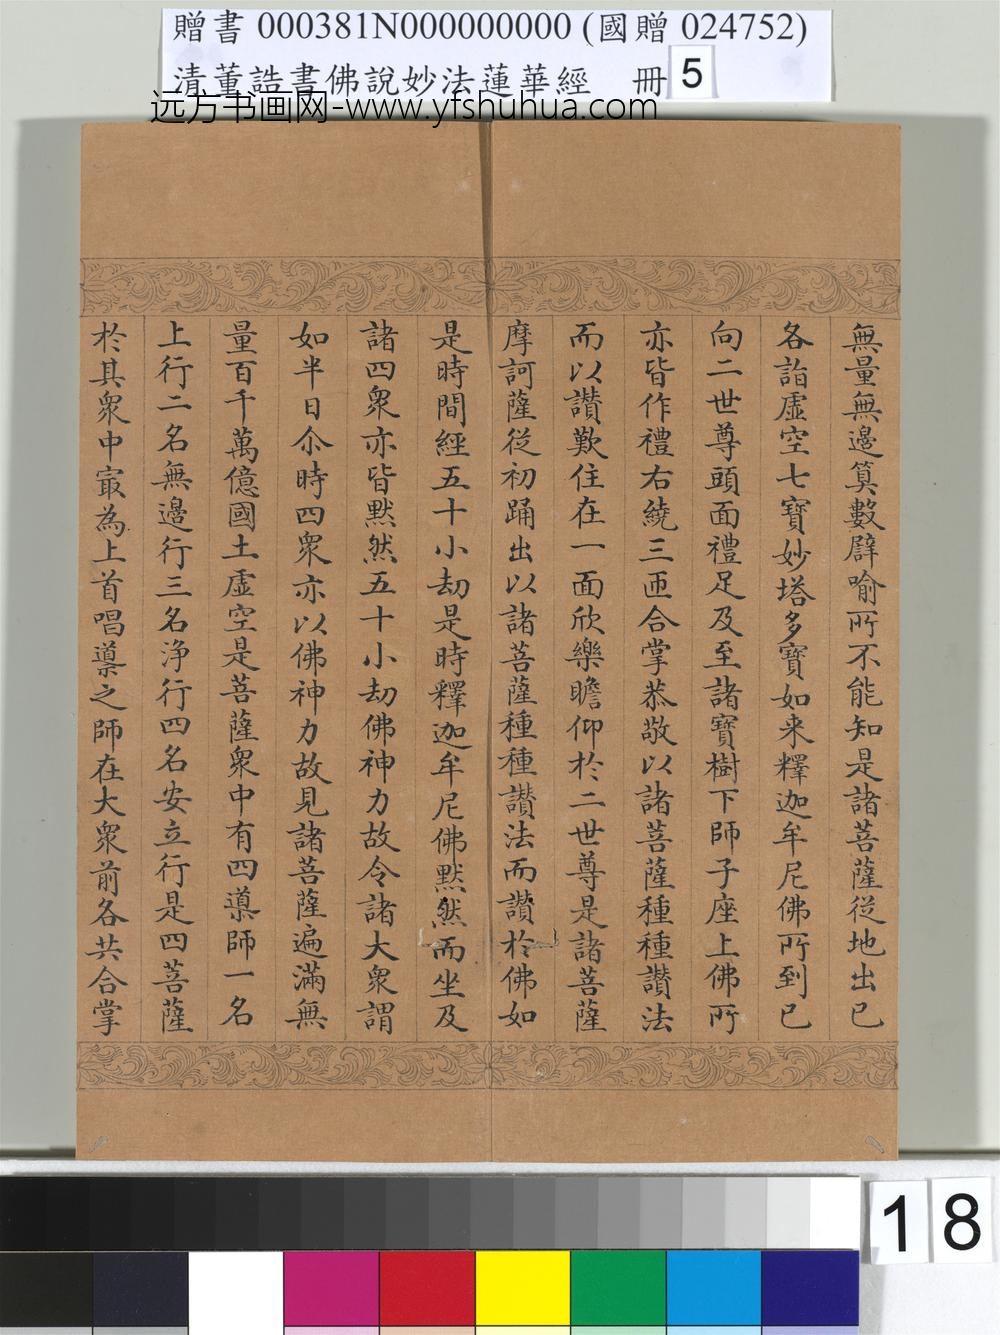 贈書 000381N000000000 (國贈 024752)
清董誥書佛說妙法蓮華經 冊 5
远方书画网-www.yfshuhua.com
無量無邊算數譬喻所不能知是諸菩薩從地出已
各詣虛空七寶妙塔多寶如来釋迦牟尼佛所到已
向二世尊頭面禮足及至諸寶樹下師子座上佛所
亦皆作禮右繞三匝合掌恭敬以諸菩薩種種讚法
而以讚歎住在一面欣樂瞻仰於二世尊是諸菩薩
摩訶薩從初踊出以諸菩薩種種讚法而讚於佛如
是時間經五十小劫是時釋迦牟尼佛默然而坐及
諸四衆亦皆默然五十小劫佛神力故令諸大衆謂
如半日尒時四衆亦以佛神力故見諸菩薩遍滿無
量百千萬億國土虛空是菩薩衆中有四導師一名
上行二名無邊行三名淨行四名安立行是四菩薩
於其衆中寂為上首唱導之師在大衆前各共合掌
18